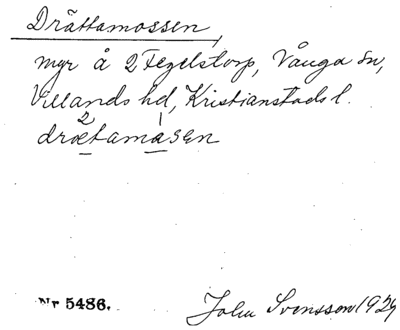 Drättamossen,
myr å 2 Tegelstorp, Vånga sn,
Villands hd, Kristianstads l.
2 1
drætamasen
Nr 5486.
John Svensson 1929